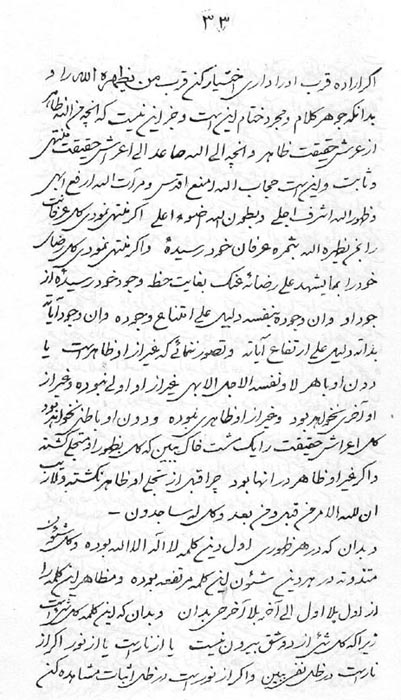 ٣٣
اگر اراده قرب او را داری اختیار کن قرب من یظهره الله را و
بدانکه جوهر کلام و مجرد ختام این است و جز این نیست که آنچه من الله ظاهر
از عرش حقیقت ظاهر و آنچه الی الله صاعد الی اعراش حقیقت منتهی
و ثابت و این است حجاب الله امنع اقدس و مرآت الله ارفع ابهی
و ظهور الله اشرف اجلی و بطون الله اعلی اگر منتهی نمودی کل عرفانت
را بمن یظهره الله بثمره عرفان خود رسیدهٔ و اگر منتهی نمودی کل رضای
خود را بما یشهد علی رضائه عنک بغایت حظ وجود خود رسیدهٔ از
جود او و ان وجوده بنفسه دلیل علی امتناع وجوده و ان وجود آیاته
بذاته دلیل علی ارتفاع آیاته و تصور ننمائی که غیر از او ظاهر است یا
دون او باهر لا و نفسه الاجل الابهی غیر از او اولی نبوده و غیر از
او آخری نخواهد بود و غیر از او ظاهری نبوده و دون او باطنی نخواهد بود
کل اعراش حقیقت را یک مشت خاک ببین که کل بظهور او متجلی گشته
و اگر غیر او ظاهر در آنها بود چرا قبل از تجلی او ظاهر نگشته
ان لله الامر من قبل و من بعد و کل له ساجدون –
و بدان که در هر ظهوری اول دین کلمه لا اله الا الله بوده و کل شئون
متذوته در هر دینی شئون این کلمه مرتفعه بوده و مظاهر این کلمه را
از اول بلا اول الی آخر بلا آخر حی بدان و بدان که این کلمه کل شیء است
زیرا که کل شیء از دو شق بیرون نیست یا از نار است یا از نور اگر از
نار است در ظل نفی ببین و اگر از نور است در ظل اثبات مشاهده کن